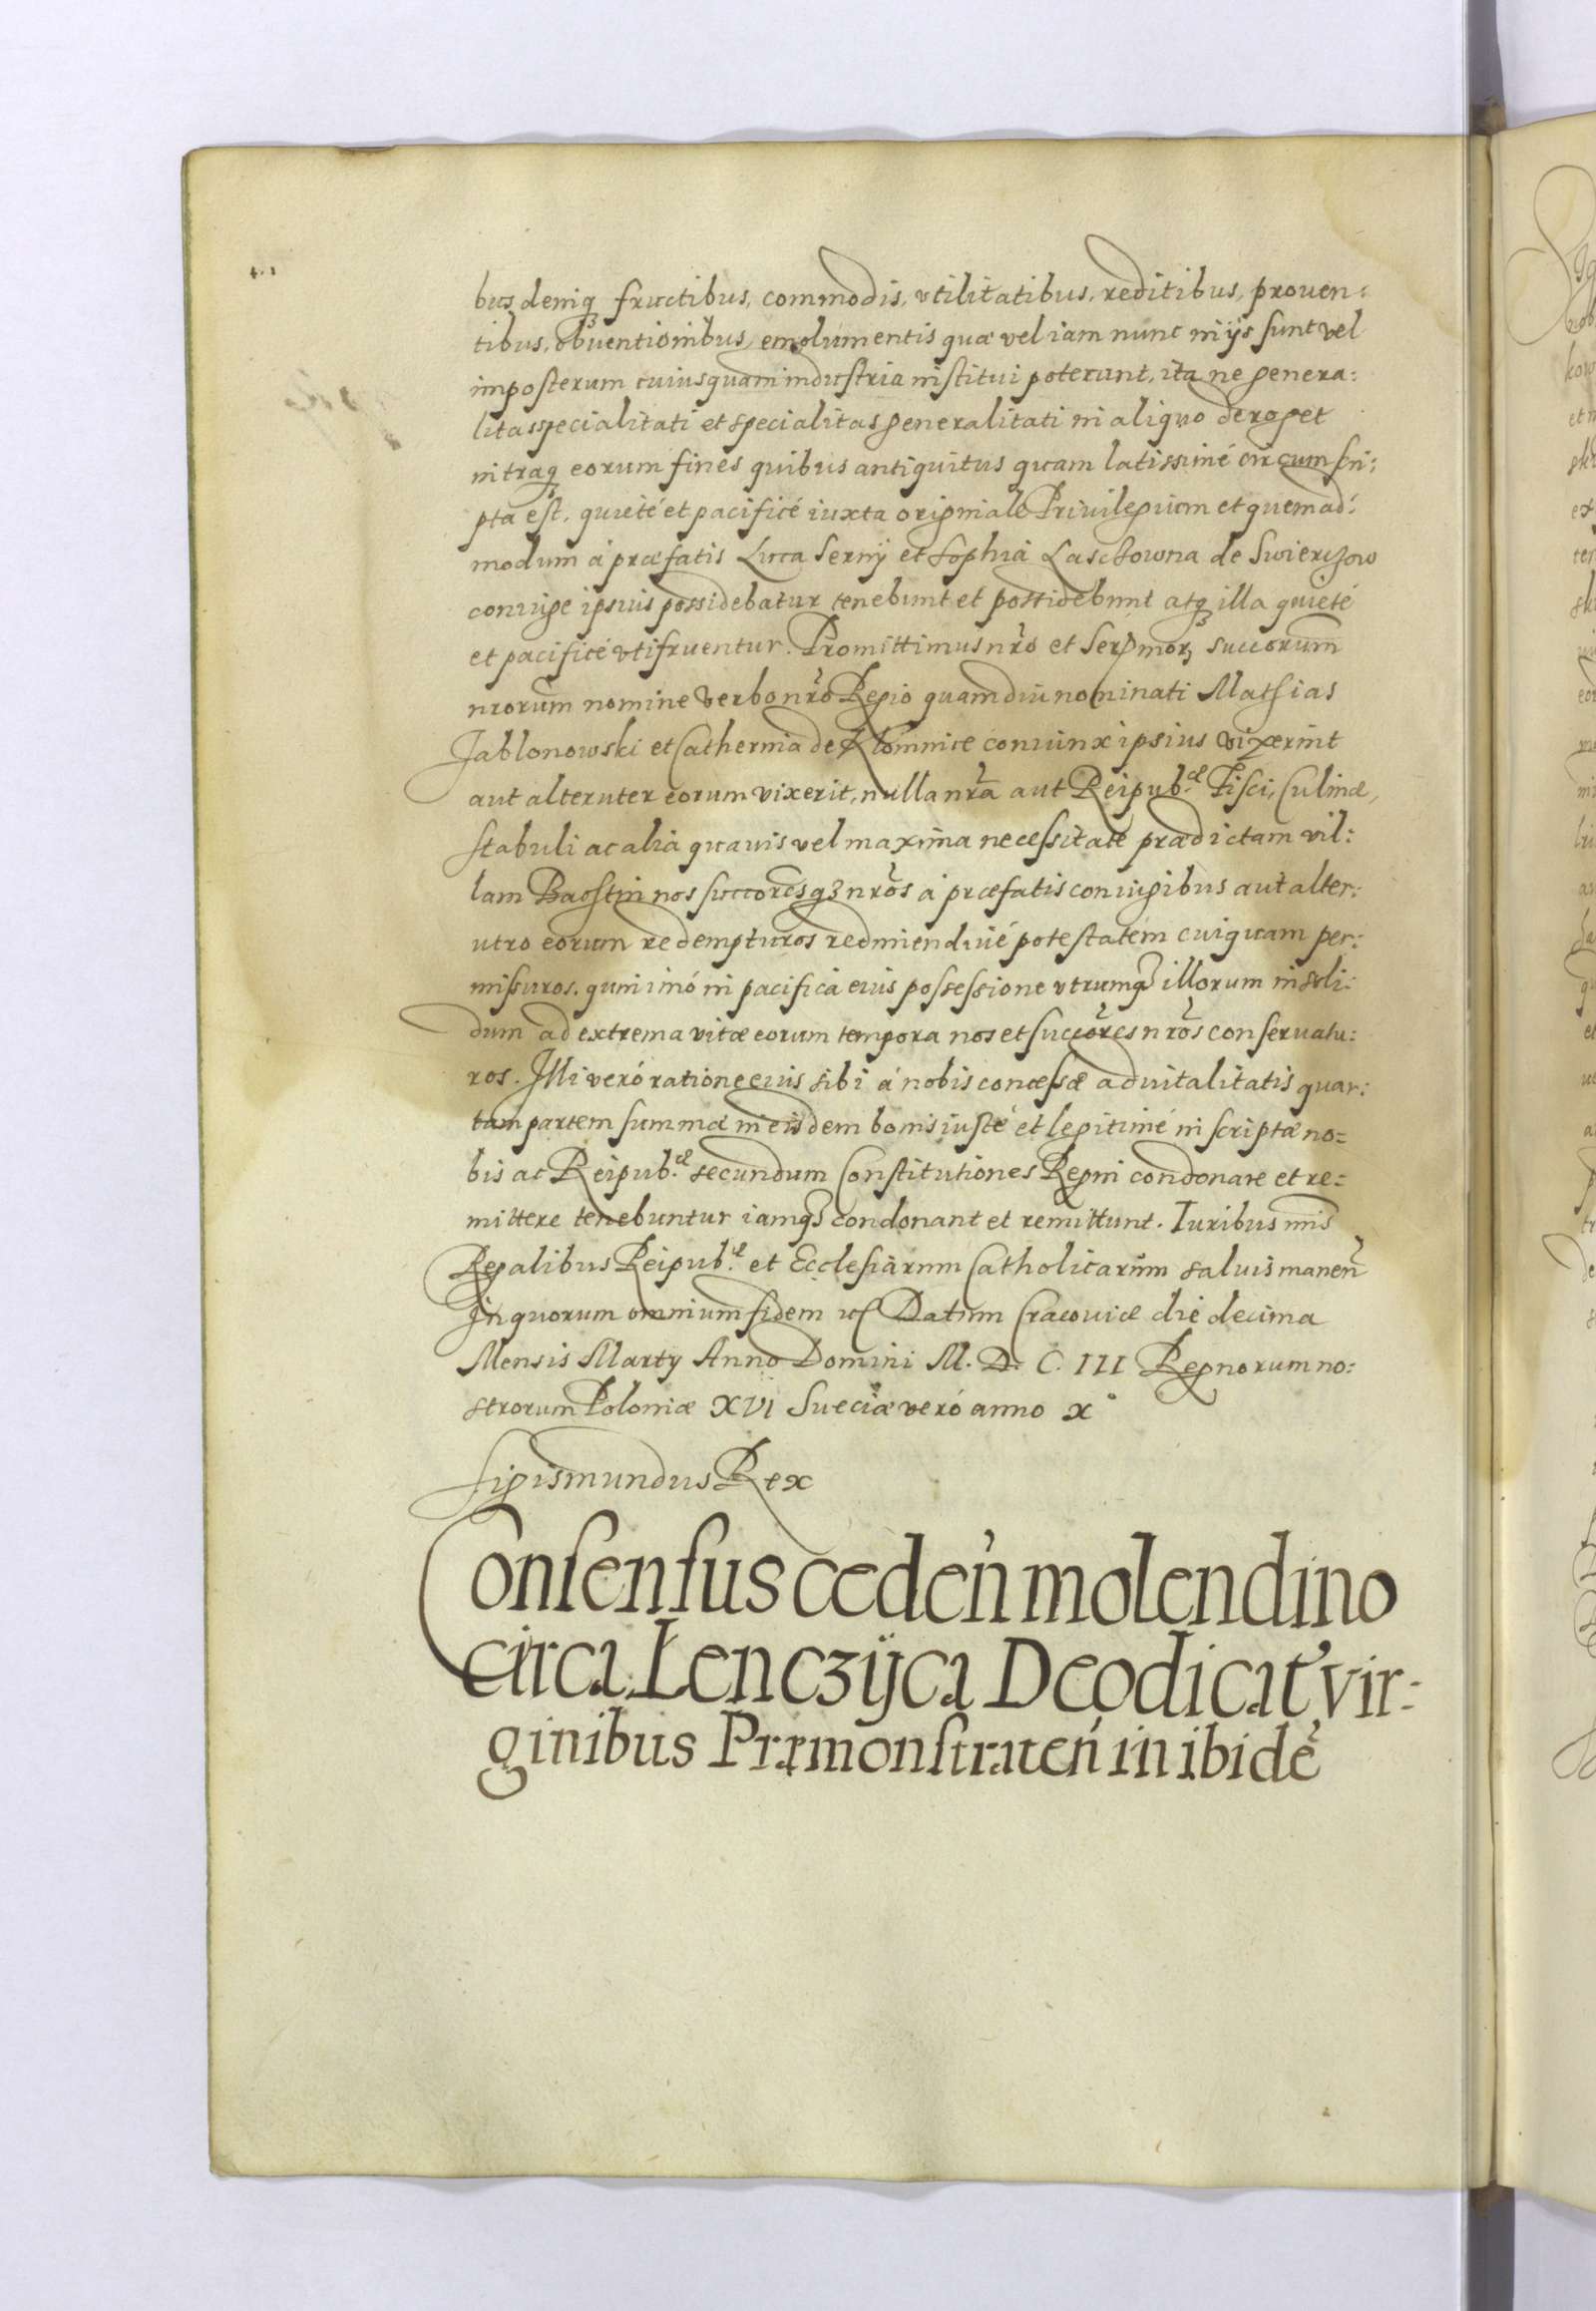 bus deniq fructibus, commodis, vtilitatibus, reditibus, prouen:
tibus, obuentionibus, emolumentis quæ vel iam nunc in ijs sunt vel
imposterum cuiusquam industria institui poterunt, ita ne genera:
litas specialitati et specialitas generalitati in aliquo deroget
intraq eorum fines quibus antiquitus quam latissimé circumscri:
pta est, quieté et pacificé iuxta originale Priuilegium et quemad:
modum á præfatis Luca Serny et Sophiá Laschowna de Swierczow
coniuge ipsius possidebatur tenebunt et possidebunt atq illa quieté
et pacificé vtifruentur. Promittimus nrõ et Sermorz succorum
nrorum nomine verbo nrõ Regio quamdiu nominati Mathias
Jablonowski et Catherina de Klomnice coniunx ipsius vixerint
aut alteruter eorum vixerit, nulla nrã aut Reipub.æ Fisci, Culinæ,
stabuli ac aliá quauis vel maxima necessitate prædictam vil:
lam nos succoresqz nrõs á præfatis coniugibus aut alter:
utro eorum redempturos redimendiué potestatem cuiquam per:
missuros. quin imó in pacifica eius possessione vtrumqz illorum in soli:
dum ad extrema vitæ eorum tempora nos et succores nrõs conseruatu:
ros. Illi veró ratione eius sibi á nobis concessæ aduitalitatis quar:
tam partem summæ in eisdem bonis iusté et legitimé inscriptæ no=
bis ac Reipub.æ secundum Constitutiones Regni condonare et re:
mittere tenebuntur iamqz condonant et remittunt. Iuribus nris
Regalibus Reipub.æ et Ecclesiarum Catholicarum saluis manen
In quorum omnium fidem Datum Cracouiæ die decima
Mensis Marty Anno Domini M. D. C. III Regnorum no:
strorum Poloniæ XVI Sueciæ veró anno x°
Sigismundus Rex
Consensus ceden molendino
circa Lenczÿca Deodicat vir:
ginibus Præmonstraten in ibidẽ